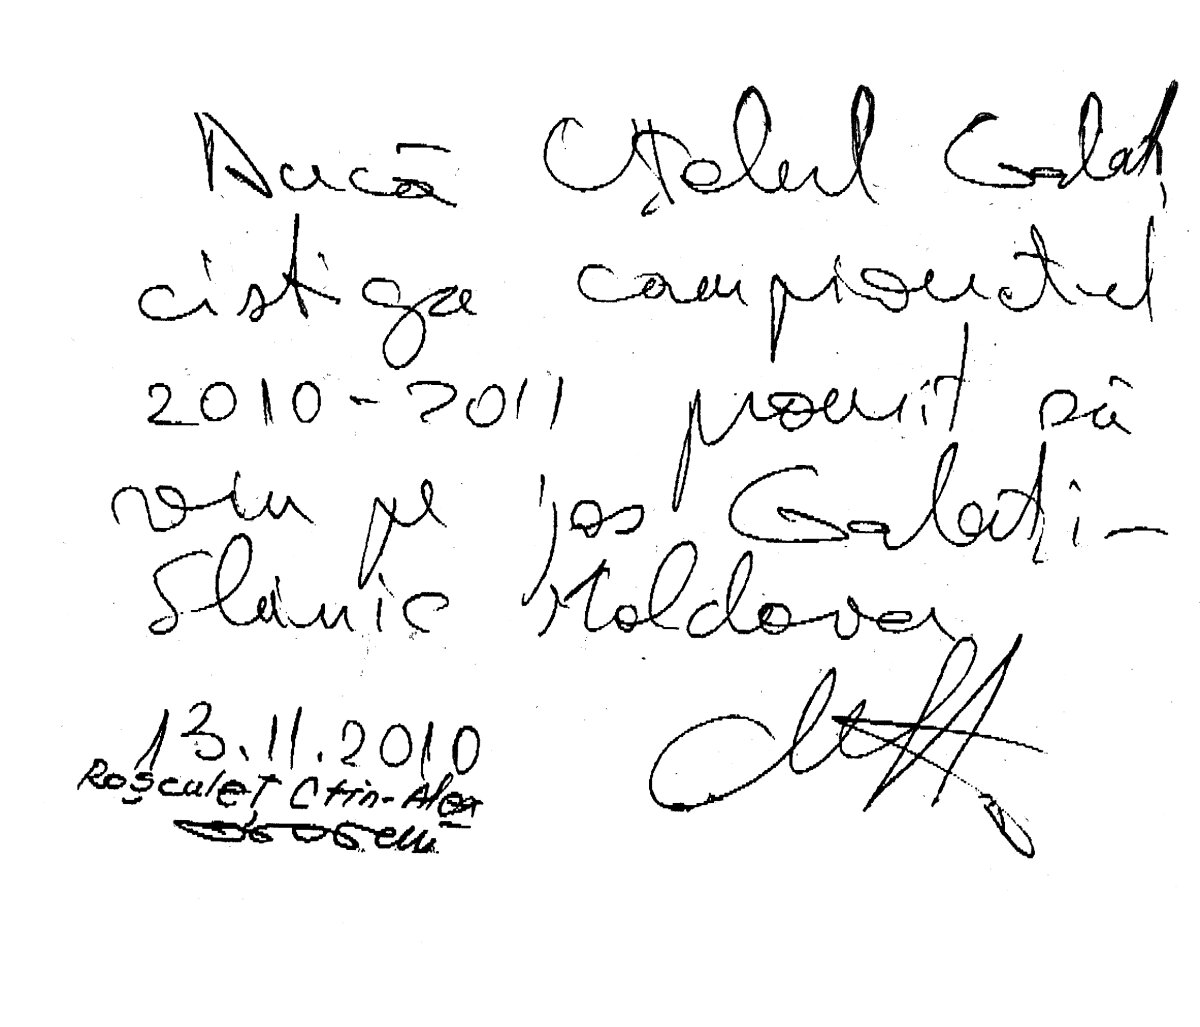 Dacă Oţelul Galaţi
cistiga campionatul
2010-2011 promit să
vin pe jos Galaţi-
Slănic Moldova
13.11.2010
Roşculeţ Ctin-Alex